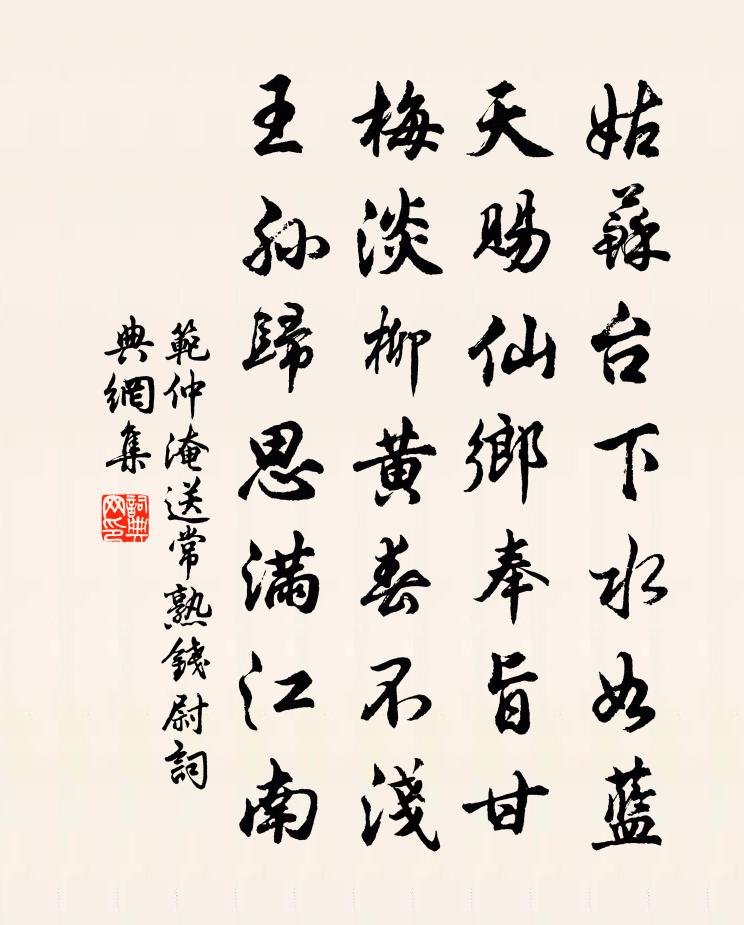 姑蘇台下水如藍
天賜仙鄉奉旨甘
梅淡柳黃春不淺
王孫歸思滿江南
範仲淹送常熟錢尉詞
典網集
詞典
网印